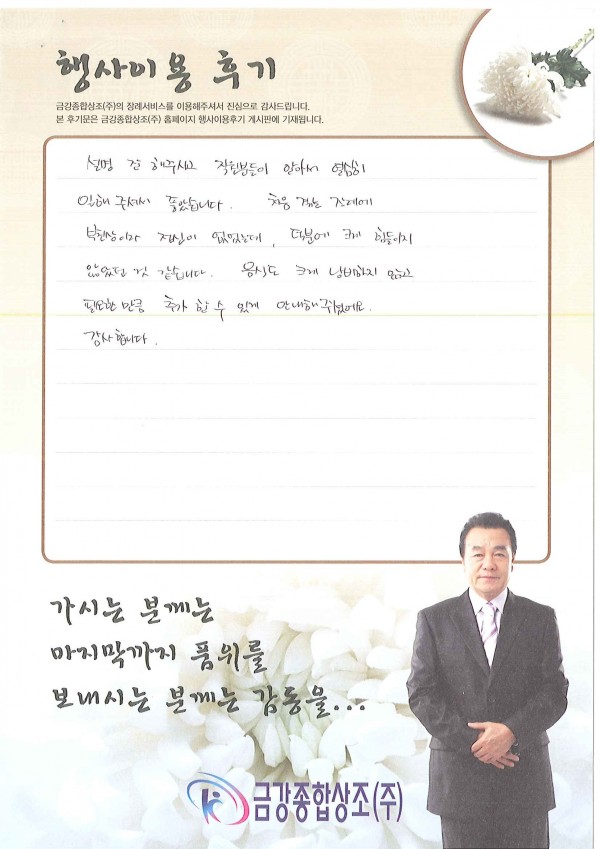 행사이용 후기
금강종합상조(주)의 장례서비스를 이용해주셔서 진심으로 감사드립니다.
본 후기문은 금강종합상조(주) 홈페이지 행사이용후기 게시판에 기재됩니다.
설명 잘 해주시고 직원분들이 알아서 열심히
일해 주셔서 좋았습니다. 처음 겪는 장례에
상이라 정신이 없었는데, 덕분에 크게 힘들이지
않았던 것 같습니다. 음식도 크게 낭비하지 않고
필요한 만큼 추가 할 수 있게 안내해 주셨어요.
감사합니다.
가시는 분께는
마지막까지 품위를
보내시는 분께는 감동을...
금강종합상조(주)